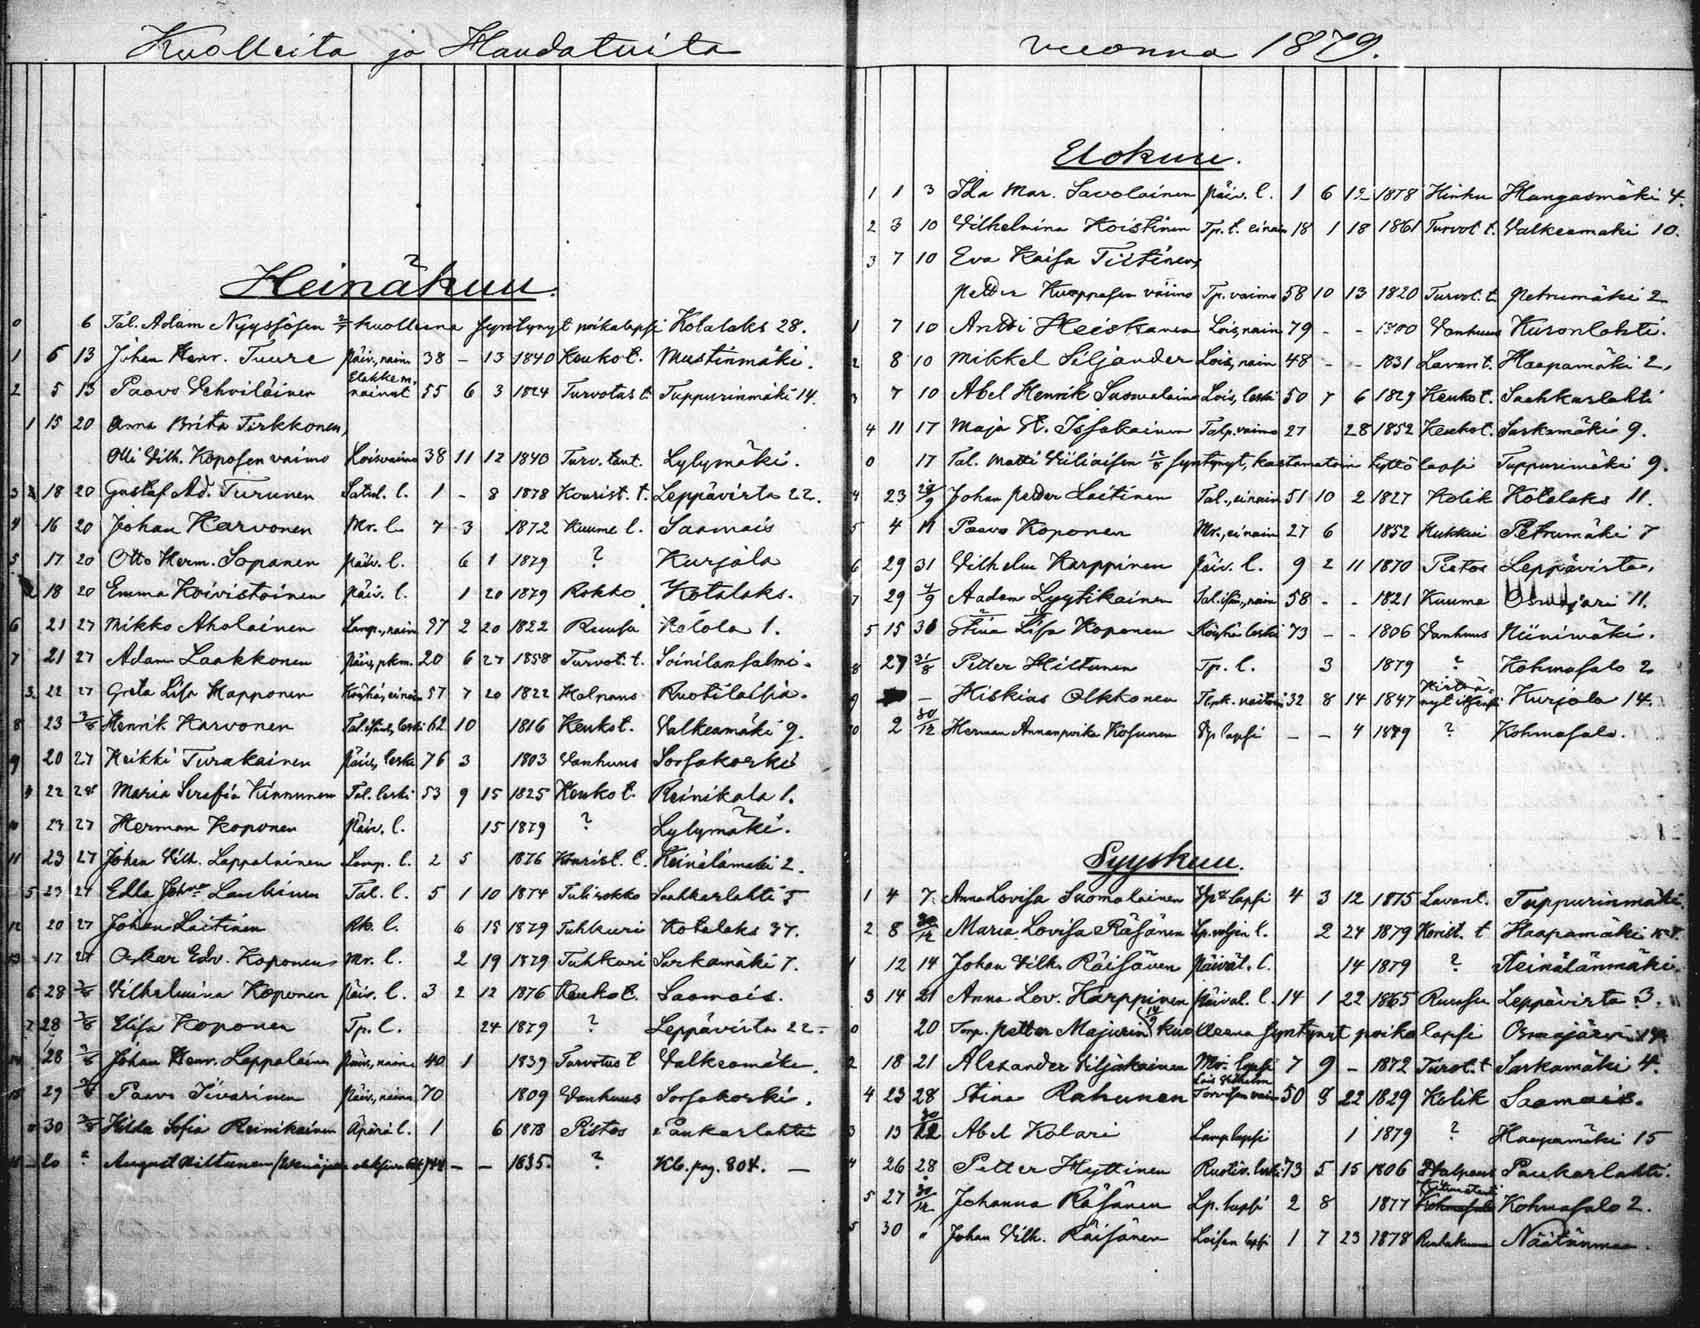 Kuolleita ja Haudatuita
Heinäkuu.
0 6 Tal. Adam Nyyssösen kuolleena syntynyt poikalapsi Kotalaks 28.
1 6 13 Johan Henr. Tuure Päiv., nain 38 - 13 1840 Keukot. Mustinmäki.
2 5 13 Paavo Vehviläinen nainut 55 6 3 1824 Turvotus t Tuppurinmäki 14.
1 15 20 Anna Brita Tirkkonen,
Olli Vilh. Koposen vaimo Loisvaimo 38 11 12 1840 Turv. taut. Lylymäki.
3 18 20 Gustaf Ad. Turunen Satul. l. 1 - 8 1878 Kourist. t. Leppävirta 22.
4 16 20 Johan Karvonen Mr. l. 7 3 1872 Kuume l. Saamais
5 17 20 Otto Herm. Soponen Päiv. l. 6 1 1879 ? Kurjala
2 18 20 Emma Koivistoinen Päiv. l. 1 20 1879 Rokko Kotalaks.
6 21 27 Mikko Aholainen Lamp., nain 57 2 20 1822 Ruusu Kotola 1.
7 21 27 Adam Laakkonen Päiv. pkm. 20 6 27 1858 Turvot. t. Soinilansalmi.
3 22 27 Greta Lisa Happonen Köyhä, einain 57 7 20 1822 Halpaus Ruotilaisia.
8 23 3/8 Henrik Karvonen 62 10 1816 Keukot. Valkeamäki 9.
9 20 27 Heikki Turakainen Päiv. leski 76 3 1803 Vanhuus Sorsakoski
4 22 27 Maria Serefia Kinnunen Tal. leski 53 9 15 1825 Keukot. Reinikala 1.
10 23 27 Herman Koponen Päiv. l. 15 1879 ? Lylymäki.
11 23 27 Johan Vilh. Lappalainen Lamp. l. 2 5 1876 Kourist. t. Heinälämäki 2.
5 23 27 Edla Joh:na Laukinen Tal. l. 5 1 10 1874 Tulirokko Saahkarlahti 5
12 20 27 Johan Laitinen Rk. l. 6 15 1879 Tuhkuri Kotalaks 37.
13 17 27 Oskar Edv. Koponen Mr. l. 2 19 1879 Tuhkuri Sarkamäki 7.
6 28 3/8 Vilhelmina Koponen Päiv. l. 3 2 12 1876 Keukot. Saamais.
7 28 3/8 Elisa Koponen Tp. l. 24 1879 ? Leppävirta 22.
14 28 3/8 Johan Henr. Lappalainen Päiv., nain 40 1 1839 Turvotus t Valkeamäki.
15 29 3/8 Paavo Iivarinen Päiv., nain 70 1809 Vanhuus Sorsakoski.
8 30 3/8 Hilda Sofia Reinikainen Äpärä l. 1 6 1878 Pistos Paukarlahti
16 20 ? August Hiltunen 44 - - 1835. ? Kb. pag. 804. -
vuonna 1879.
Elokuu.
1 1 3 Ida Mar. Savolainen Päiv. l. 1 6 12 1878 Hinku Hangasmäki 4.
2 3 10 Vilhelmina Koistinen Tp. t. einain 18 1 18 1861 Turvot t. Valkeamäki 10.
3 7 10 Eva Kaisa Tiitinen,
Petter Kuoppasen vaimo Tp. vaimo 58 10 13 1820 Turvot. t. Petrumäki 2
1 7 10 Antti Heiskanen Lois, nain 79 - - 1800 Vanhuus Kuronlahti.
2 8 10 Mikkel Siljander Lois, nain 48 - - 1831 Lavant. Haapamäki 2.
3 7 10 Abel Henrik Suomalainen Lois, leski 50 7 6 1829 Keukot. Saahkarlahti
4 11 17 Maja K. Issakainen Talp. vaimo 27 28 1852 Keukot. Sarkamäki 9.
0 17 Tal. Matti Viiliäisen syntynyt, kastamatoin tyttölapsi Tuppurimäki 9.
4 23 Johan Petter Laitinen Tal., einain 51 10 2 1827 Kolik Kotalaks 11.
5 4 11 Paavo Koponen Mr., einain 27 6 1852 Hukkui Petrumäki 7
6 29 31 Vilhelm Karppinen Päiv. l. 9 2 11 1870 Pistos Leppävirta,
7 29 7/9 Aadam Lyytikäinen nain 58 - - 1821 Kuume Osmajäri 11.
5 15 30 Stina Lisa Koponen Köyhä leski 73 - - 1806 Vanhuus Niinimäki.
8 27 31/8 Petter Hiltunen Tp. l. 3 1879 ? Kohmasalo 2
9 - Hiskias Olkkonen 32 8 14 1847 Kurjala 14.
10 2 30/12 Herman Annanpoika Kosunen Yp. lapsi - - 4 1879 ? Kohmasalo.
Syyskuu.
1 4 7 Anna Lovisa Suomalainen lapsi 4 3 12 1875 Lavant. Tuppurinmäki.
2 8 30/12 Maria Lovisa Räsänen l. 2 24 1879 Korist. t Haapamäki
1 12 14 Johan Vilh. Räisänen Päiväl. l. 14 1879 ? Heinälänmäki
3 14 21 Anna Lov. Karppinen Päiväl. l. 14 1 22 1865 Ruusu Leppävirta 3.
0 20 Torp. Petter Majurin kuolleena syntynyt poikalapsi Osmajärvi
2 18 21 Alexander Viljakainen Mr. lapsi 7 9 - 1872 Turot. t Sarkamäki 4.
4 23 28 Stina Rahunen Lois Vilhelm Torvisen vaim 50 8 22 1829 Kolik Saamais.
3 13 30/12 Abel Kolari Lamp lapsi 1 1879 ? Haapamäki 15
4 26 28 Petter Hyttinen Ruotiv. leski 73 5 15 1806 Halpaus Paukarlahti.
5 27 30/12 Johanna Räsänen Lp. lapsi 2 8 1877 Kohmasalo 2.
5 30 " Johan Vilh. Räisänen Loisen lapsi 1 7 23 1878